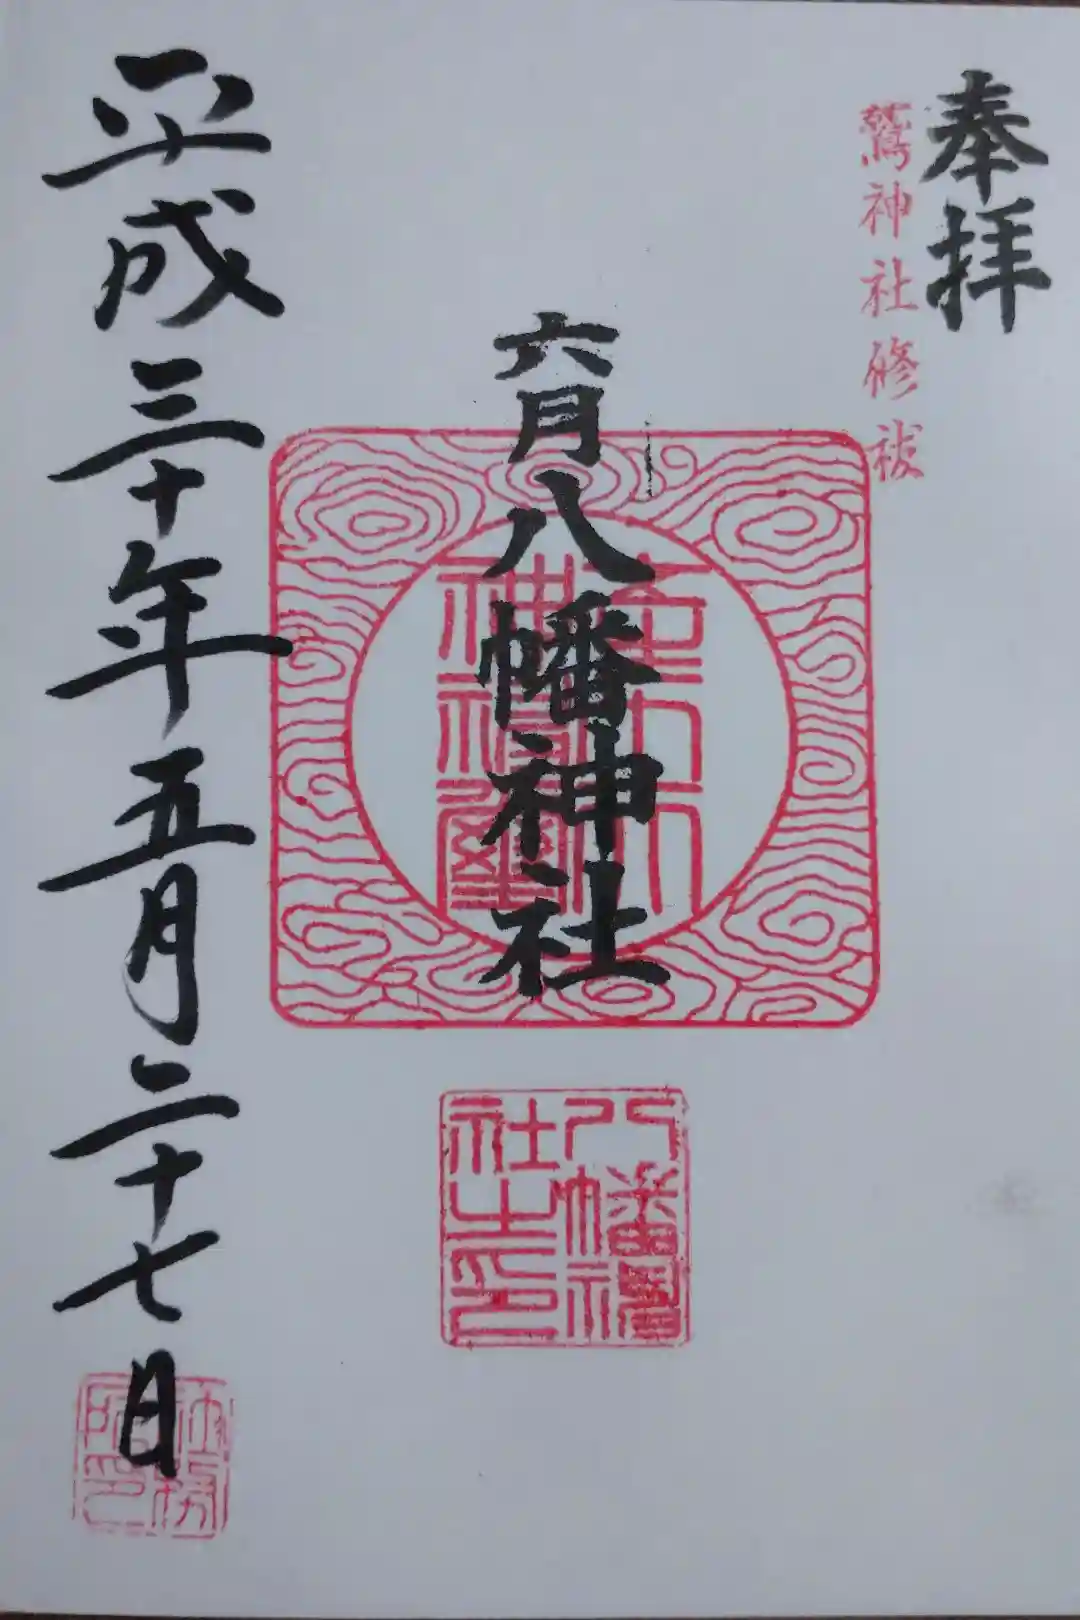 奉拝
鷲神社修祓
六月八幡神社
八幡神
社之印
平成三十年五月二十七日
社務
所印